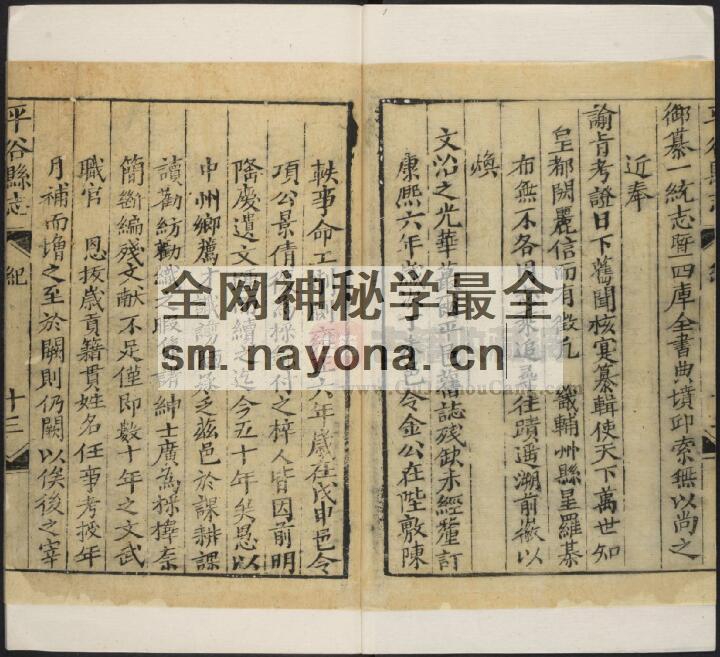 御纂一統志暨四庫全書典墳邱索無以尚之
近奉
諭旨考證日下舊聞核寔纂輯使天下萬世知
皇都閎麗信而有徵凡 畿輔州縣星羅棊
布無不各 采追尋往蹟遥溯前徽以
煥
文治之光華 平邑舊誌殘缺未經釐訂
康熙六年歲 邑令金公在陛敷陳
軼事命工 六年歲在戊申邑令
項公景倩 付之梓人皆因前明
隆慶遺文 續之迄今五十年矣愚以
中州鄉薦才 乏兹邑於課耕課
讀勸紡勸織之暇 諸紳士廣為採擇奈
簡斷編殘文献不足僅即数十年之文武
職官 恩拔歲貢籍貫姓名任事考授年
月補而增之至於闕則仍闕以俟後之宰
平谷縣志 紀 十三
全网神秘学最全
sm.nayona.cn